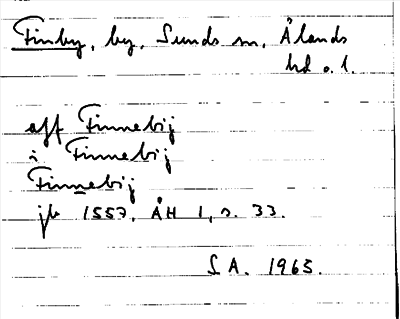 Finby, by, Sunds sn, Ålands
hd o. l.
aff Finnebij
i Finnebij
Finnebij
jb 1557. ÅH 1, s. 33.
S A. 1965.